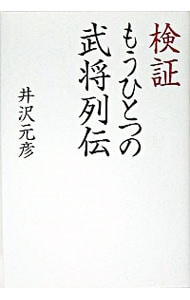 検証
もうひとつの
武将列伝
井沢元彦